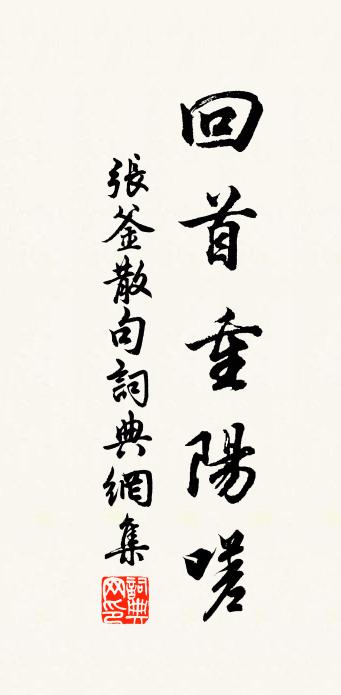 回首重陽嗟
張釜散句詞典網集
詞典网印